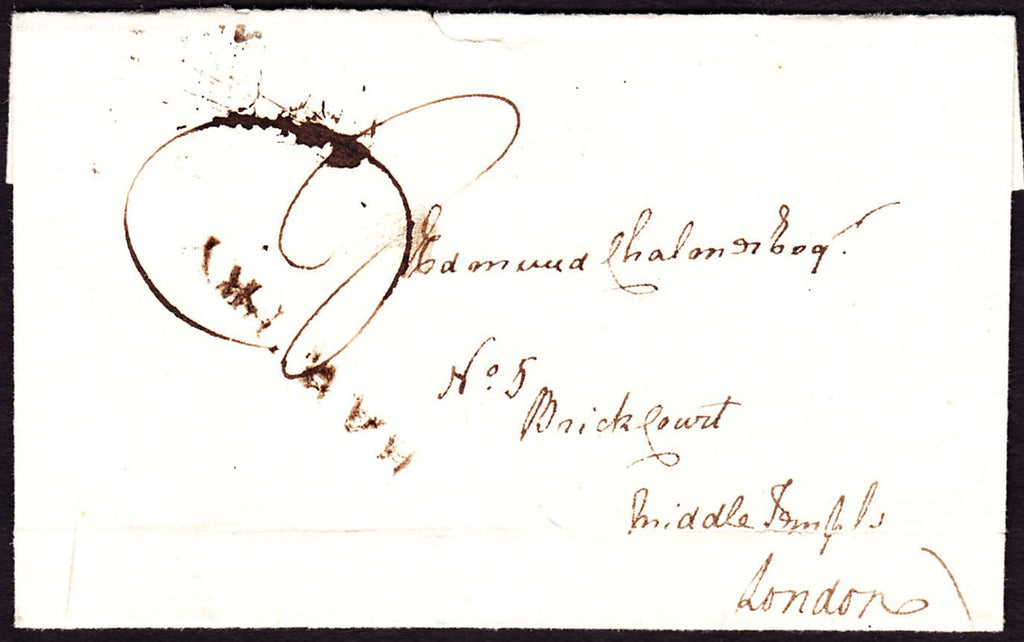 Edmund Chalmer Esqr.
No. 5
Brick Court
Middle Temple
London